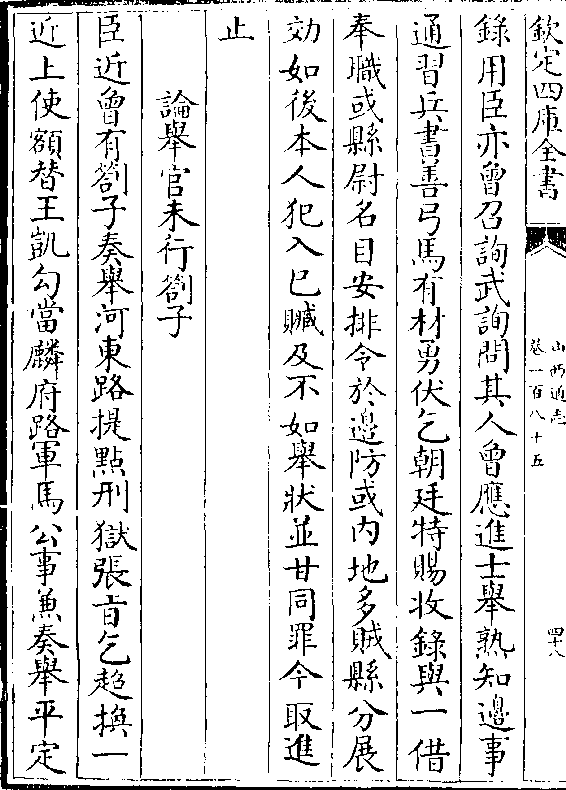 欽定四庫全書
山西通志
卷一百八十五
四十八
錄用臣亦曾召詢武詢問其人曾應進士舉熟知邊事
通習兵書善弓馬有材勇伏乞朝廷特賜收錄與一借
奉職或縣尉名目安排令於邊防或內地多賊縣分展
効如後本人犯入已贓及不如舉狀並甘同罪今取進
止
論舉官未行劄子
臣近曾有劄子奏舉河東路提點刑獄張旨乞超換一
近上使額替王凱勾當麟府路軍馬公事兼奏舉平定